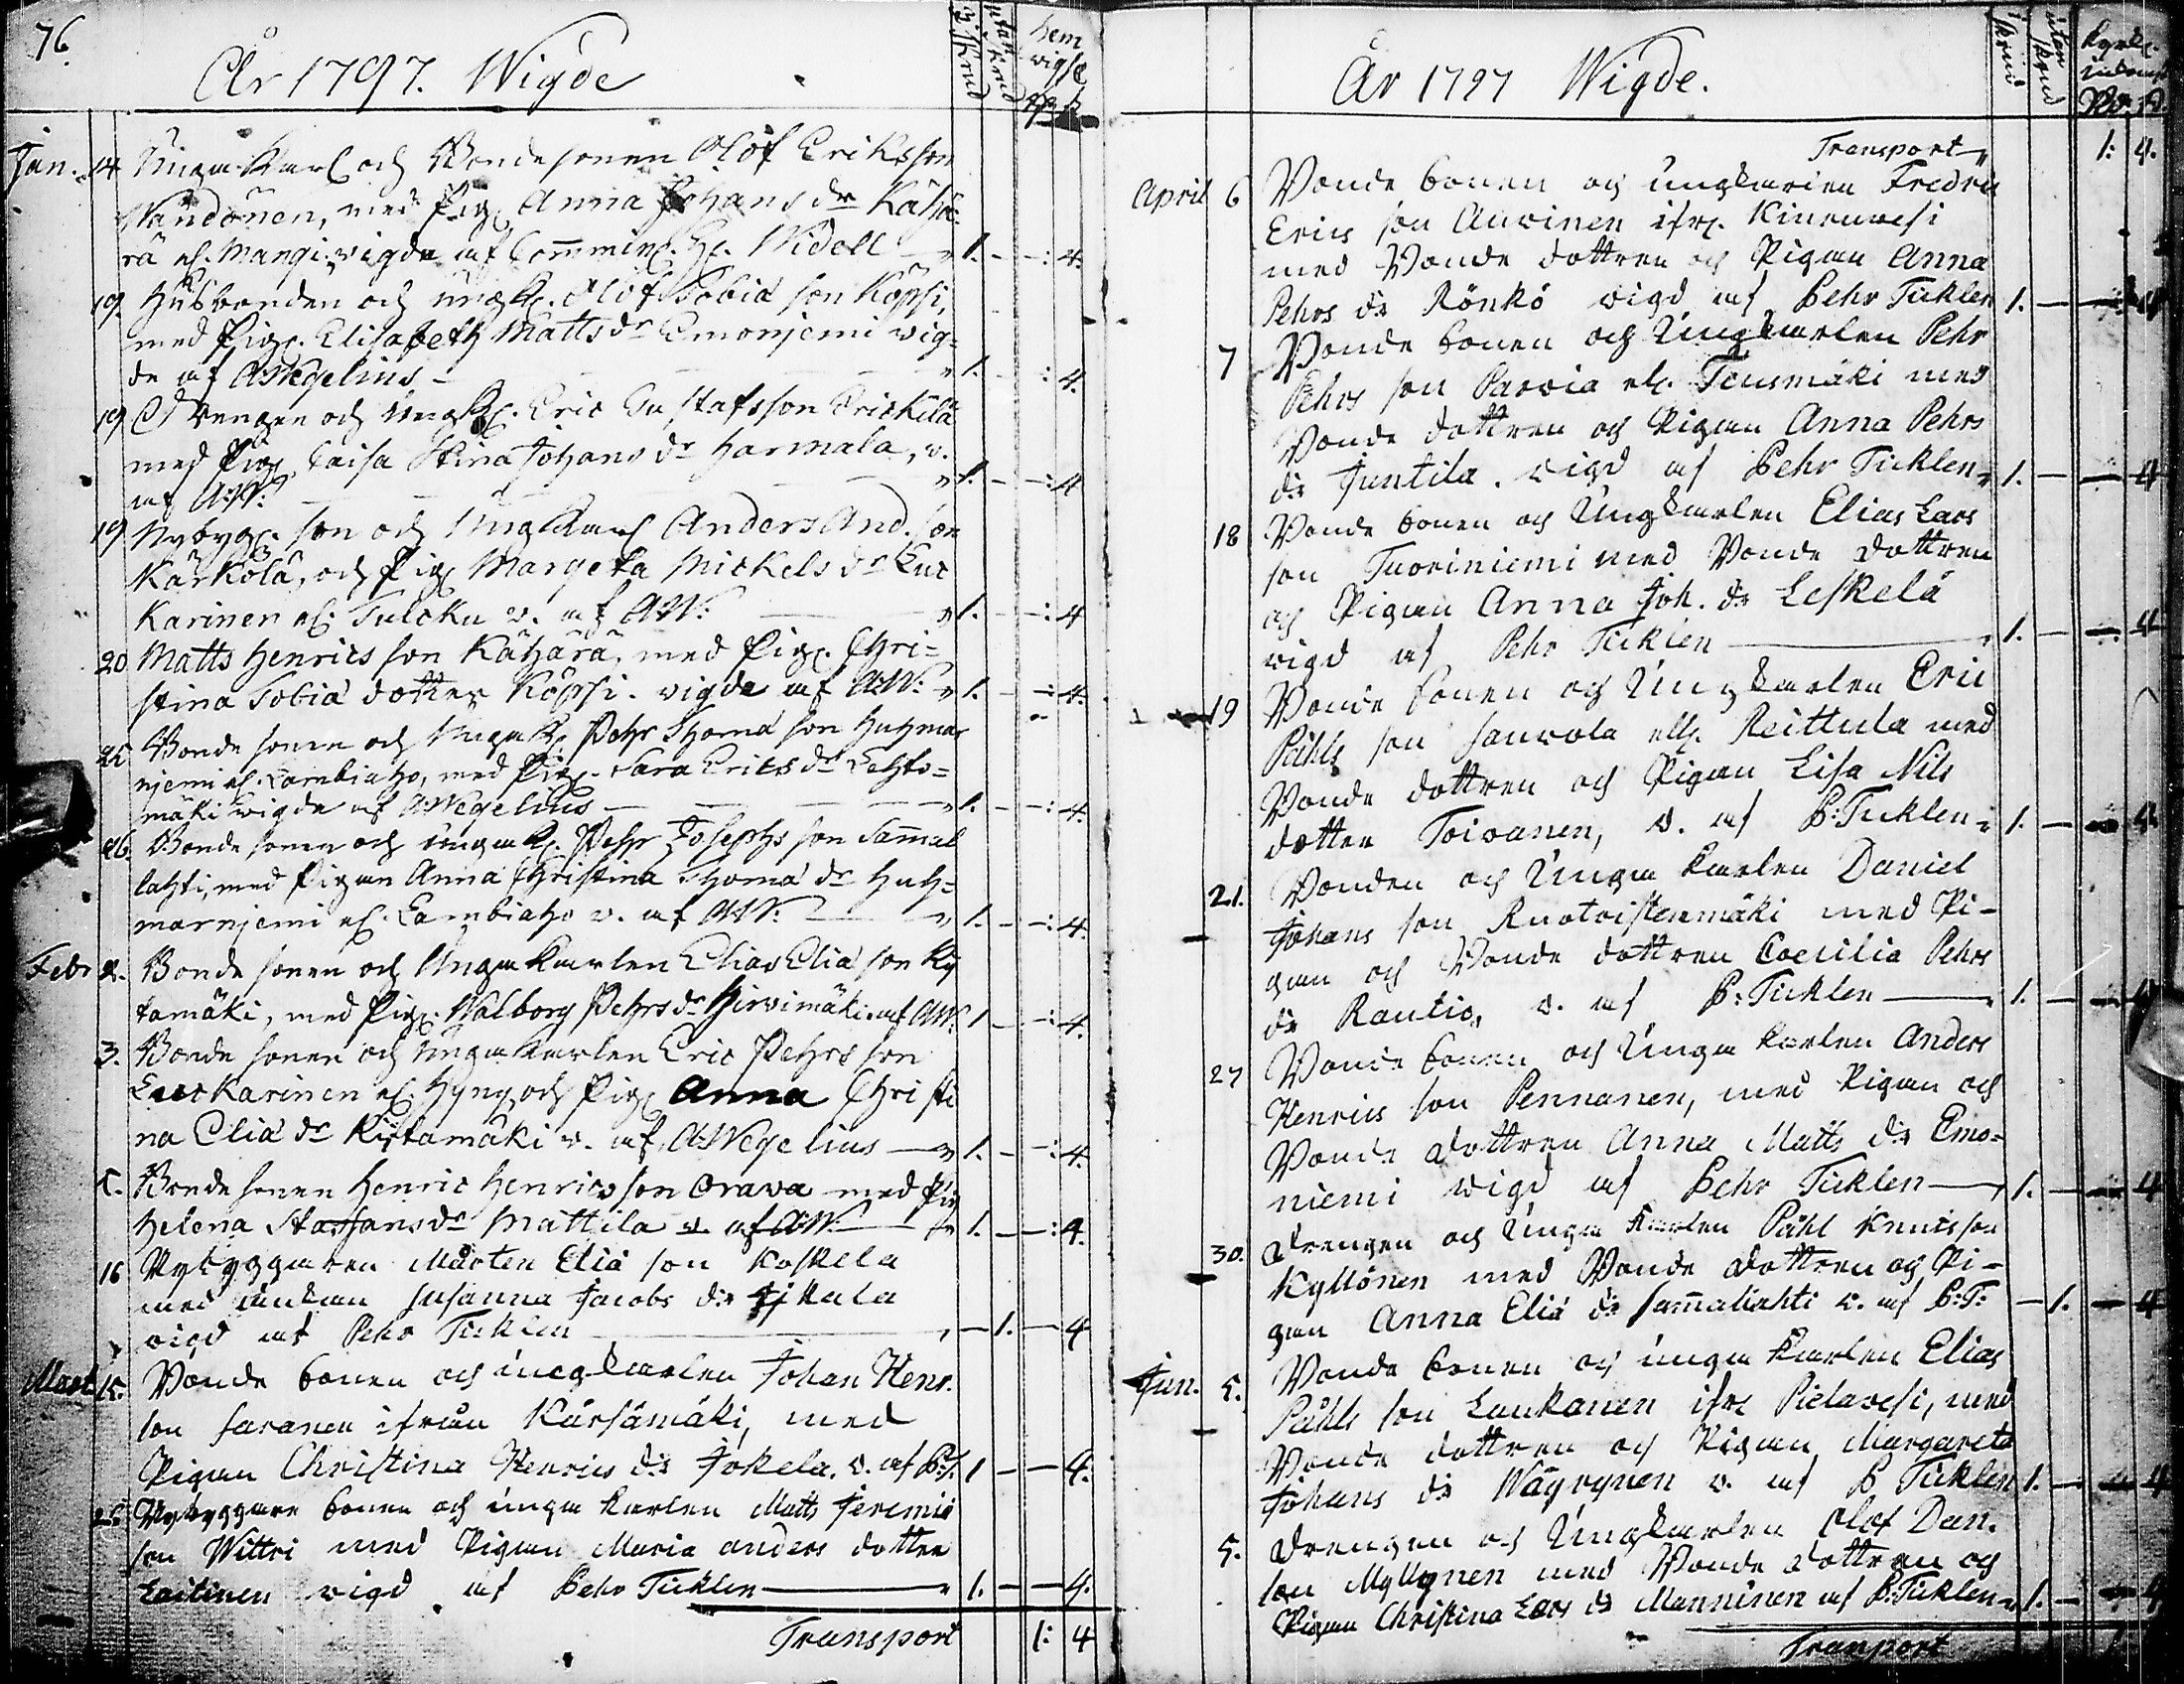 76.
År 1797. Wigde
i skrud
utan skrud
hem
wigsl
Jan. 14 Unga Karl och Bonde sonen Olof Ericksson
Wandönen, med Pig. Anna Johans dr Kähä
rä el. Mangi, vigde af Commin. H. Widell 1. - -:4.
19. Husbonden och ungk. Olof Tobiä son Köpsi,
med Pig. Elisabeth Matts dr Emonjemi vig=
de af A:Wegelius - 1. - :4.
19 Drengen och ungk. Eric Gustafsson Erickilä
med Pig. Caisa Stina Johans dr Harmala, v.
af A:W: 1. - -:4
19 Nybyg. son och Unga Karl Anders And. son
Kärkölä, och Pig. Margeta Mickels dr Leuc
Karinen el. Tulcku v. af A:W: 1. - -:4
20 Matts Henrics son Kähärä, med Pig. Chri=
stina Tobiä dotter Köpsi. vigde af A:W: 1. - -:4.
25 Bonde sonen och Unga K. Pehr Thoma son Huhmar
njemi el. Lambiaho, med Pig. Sara Erics dr Lehto=
mäki vigde af A:Wegelius - 1. - -:4.
26. Bonde sonen och unga K. Pehr Josephs son Samal
lahti, med Pigan Anna Christina Thoma dr Huh=
marnjemi el. Lambiaho v. af A:W: 1. - -:4.
Febr. 2. Bonde sonen och Unga Karlen Elias Eliä son Ky
tamäki, med Pig. Walborg Pehrs dr Hirvimäki af A:W. 1 - -:4.
3. Bonde sonen och Unga Karlen Eric Pehrs son
Leuckarinen el. Hyng, och Pig. Anna Christi
na Eliä dr Kirtamäki v. af A:Wegelius 1. - -:4.
5. Bonde sonen Henric Henrics son Orava med Pig
Helena Staffans dr Mattila v. af A:W: 1. - -:4.
16 Nybyggaren Mårten Eliä son Koskela
med enkan Susanna Jacobs dr
vigd af Pehr Ticklen - 1. - 4
Mart. 15. Bonde sonen och ungkarlen Johan Henr.
son Saranen ifrån Kärsämäki, med
Pigan Christina Henrics dr Jokela. v. af P:T. 1 - - 4.
25 Nybyggare sonen och unga karlen Matts Jeremiä
son Wittri med Pigan Maria anders dotter
Laitinen vigd af Pehr Ticklen 1. - - 4.
Transport 1: 4
År 1797 Wigde.
i skrud
utan skrud
Transport 1: 4.
April 6 Bonde sonen och ungkarlen Fredric
Erics son Auvinen ifr. Kinenvesi
med Bonde dottren och Pigan Anna
Pehrs dr Rönkö vigd af Pehr Ticklen 1. - -:4
7 Bonde sonen och Ungkarlen Pehr
Pehrs son Parvia el. Tensmäki med
Bonde dottren och Pigan Anna Pehrs
dr Juntila. vigd af Pehr Ticklen 1. - - 4
18 Bonde sonen och Ungkarlen Elias Lars
son Tuoriniemi med Bonde dottren
och Pigan Anna Joh. dr Leskelä
vigd af Pehr Ticklen 1. - - 4
19 Bonde sonen och Ungkarlen Eric
Påhls son Sauvola ell. Reittula med
Bonde dottren och Pigan Lisa Nils
dotter Toivanen, v. af P:Ticklen 1. - - 4
21. Bonden och Unga karlen Daniel
Johans son Ruotoistenmäki med Pi-
gan och Bonde dottren Caecilia Pehrs
dr Rautio, v. af P:Ticklen 1. - - 4
27 Bonde sonen och Unga karlen Anders
Henrics son Pennanen, med Pigan och
Bonde dottren Anna Matts dr Emo=
niemi vigd af Pehr Ticklen 1. - - 4
30. Drengen och Unga karlen Påhl Knutsson
Kyllönen med Bonde dottren och Pi-
gan Anna Eliä dr Samalahti v. af P:T: - 1. - 4
Jun. 5. Bonde sonen och unga karlen Elias
Påhls son Laukanen ifr. Pielavesi, med
Bonde dottren och Pigan Margareta
Johans dr Wäyrynen v. af P Ticklen 1. - - 4
5. Drengen och Ungkarlen Olof Dan.
son Myllynen med Bonde dottren och
Pigan Christina Lars dr Manninen af P:Ticklen 1. - - 4
Tranport